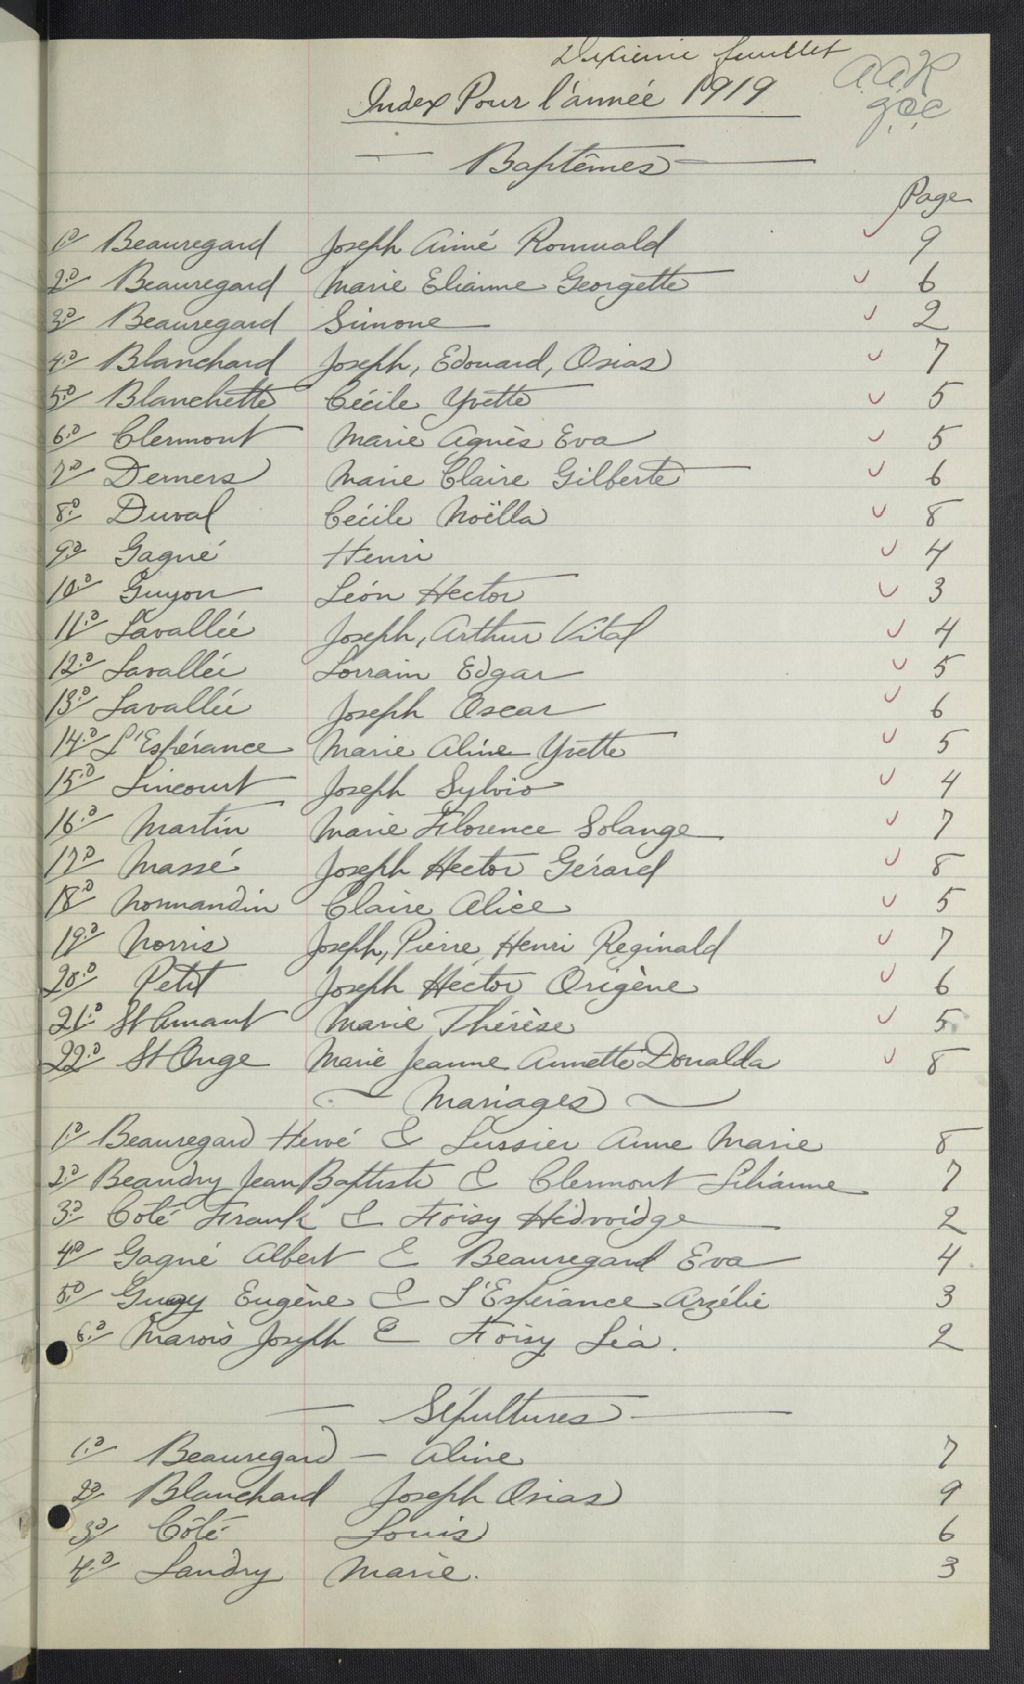 Dixième feuillet
Index Pour l'année 1919
Baptêmes
Page
1o Beauregard Joseph Aimé Romuald 9
2o Beauregard Marie Elianne Georgette 6
3o Beauregard Simone 2
4o Blanchard Joseph, Edouard, Osias 7
5o Blanchette Cécile Yvette 5
6o Clermont Marie Agnès Eva 5
7o Demers Marie Claire Gilberte 6
8o Duval Cécile Noëlla 8
9o Gagné Henri 4
10o Guyon Léon Hector 3
11o Lavallée Joseph, Arthur Vital 4
12o Lavallée Lorrain Edgar 5
13o Lavallée Joseph Oscar 6
14o L'Espérance Marie Aline Yvette 5
15o Lincourt Joseph Sylvio 4
16o Martin Marie Florence Solange 7
17o Massé Joseph Hector Gérard 8
18o Normandin Claire Alice 5
19o Norris Joseph, Pierre, Henri Reginald 7
20o Petit Joseph Héctor Origène 6
21o St Amant Marie Thérèse 5
22o St Onge Marie Jeanne Annette Donalda 8
Mariages
1o Beauregard Hervé & Lussier Anne Marie 8
2o Beaudry Jean Baptiste & Clermont Lilianne 7
3o Coté Frank & Foisy Hédvoidge 2
4o Gagné Albert & Beauregard Eva 4
5o Guay Eugène & L'Espérance Arzélie 3
6o Marois Joseph & Foisy Léa. 2
Sépultures
1o Beauregard - Aline 7
2o Blanchard Joseph Osias 9
3o Côté Louis 6
4o Landry Marie. 3